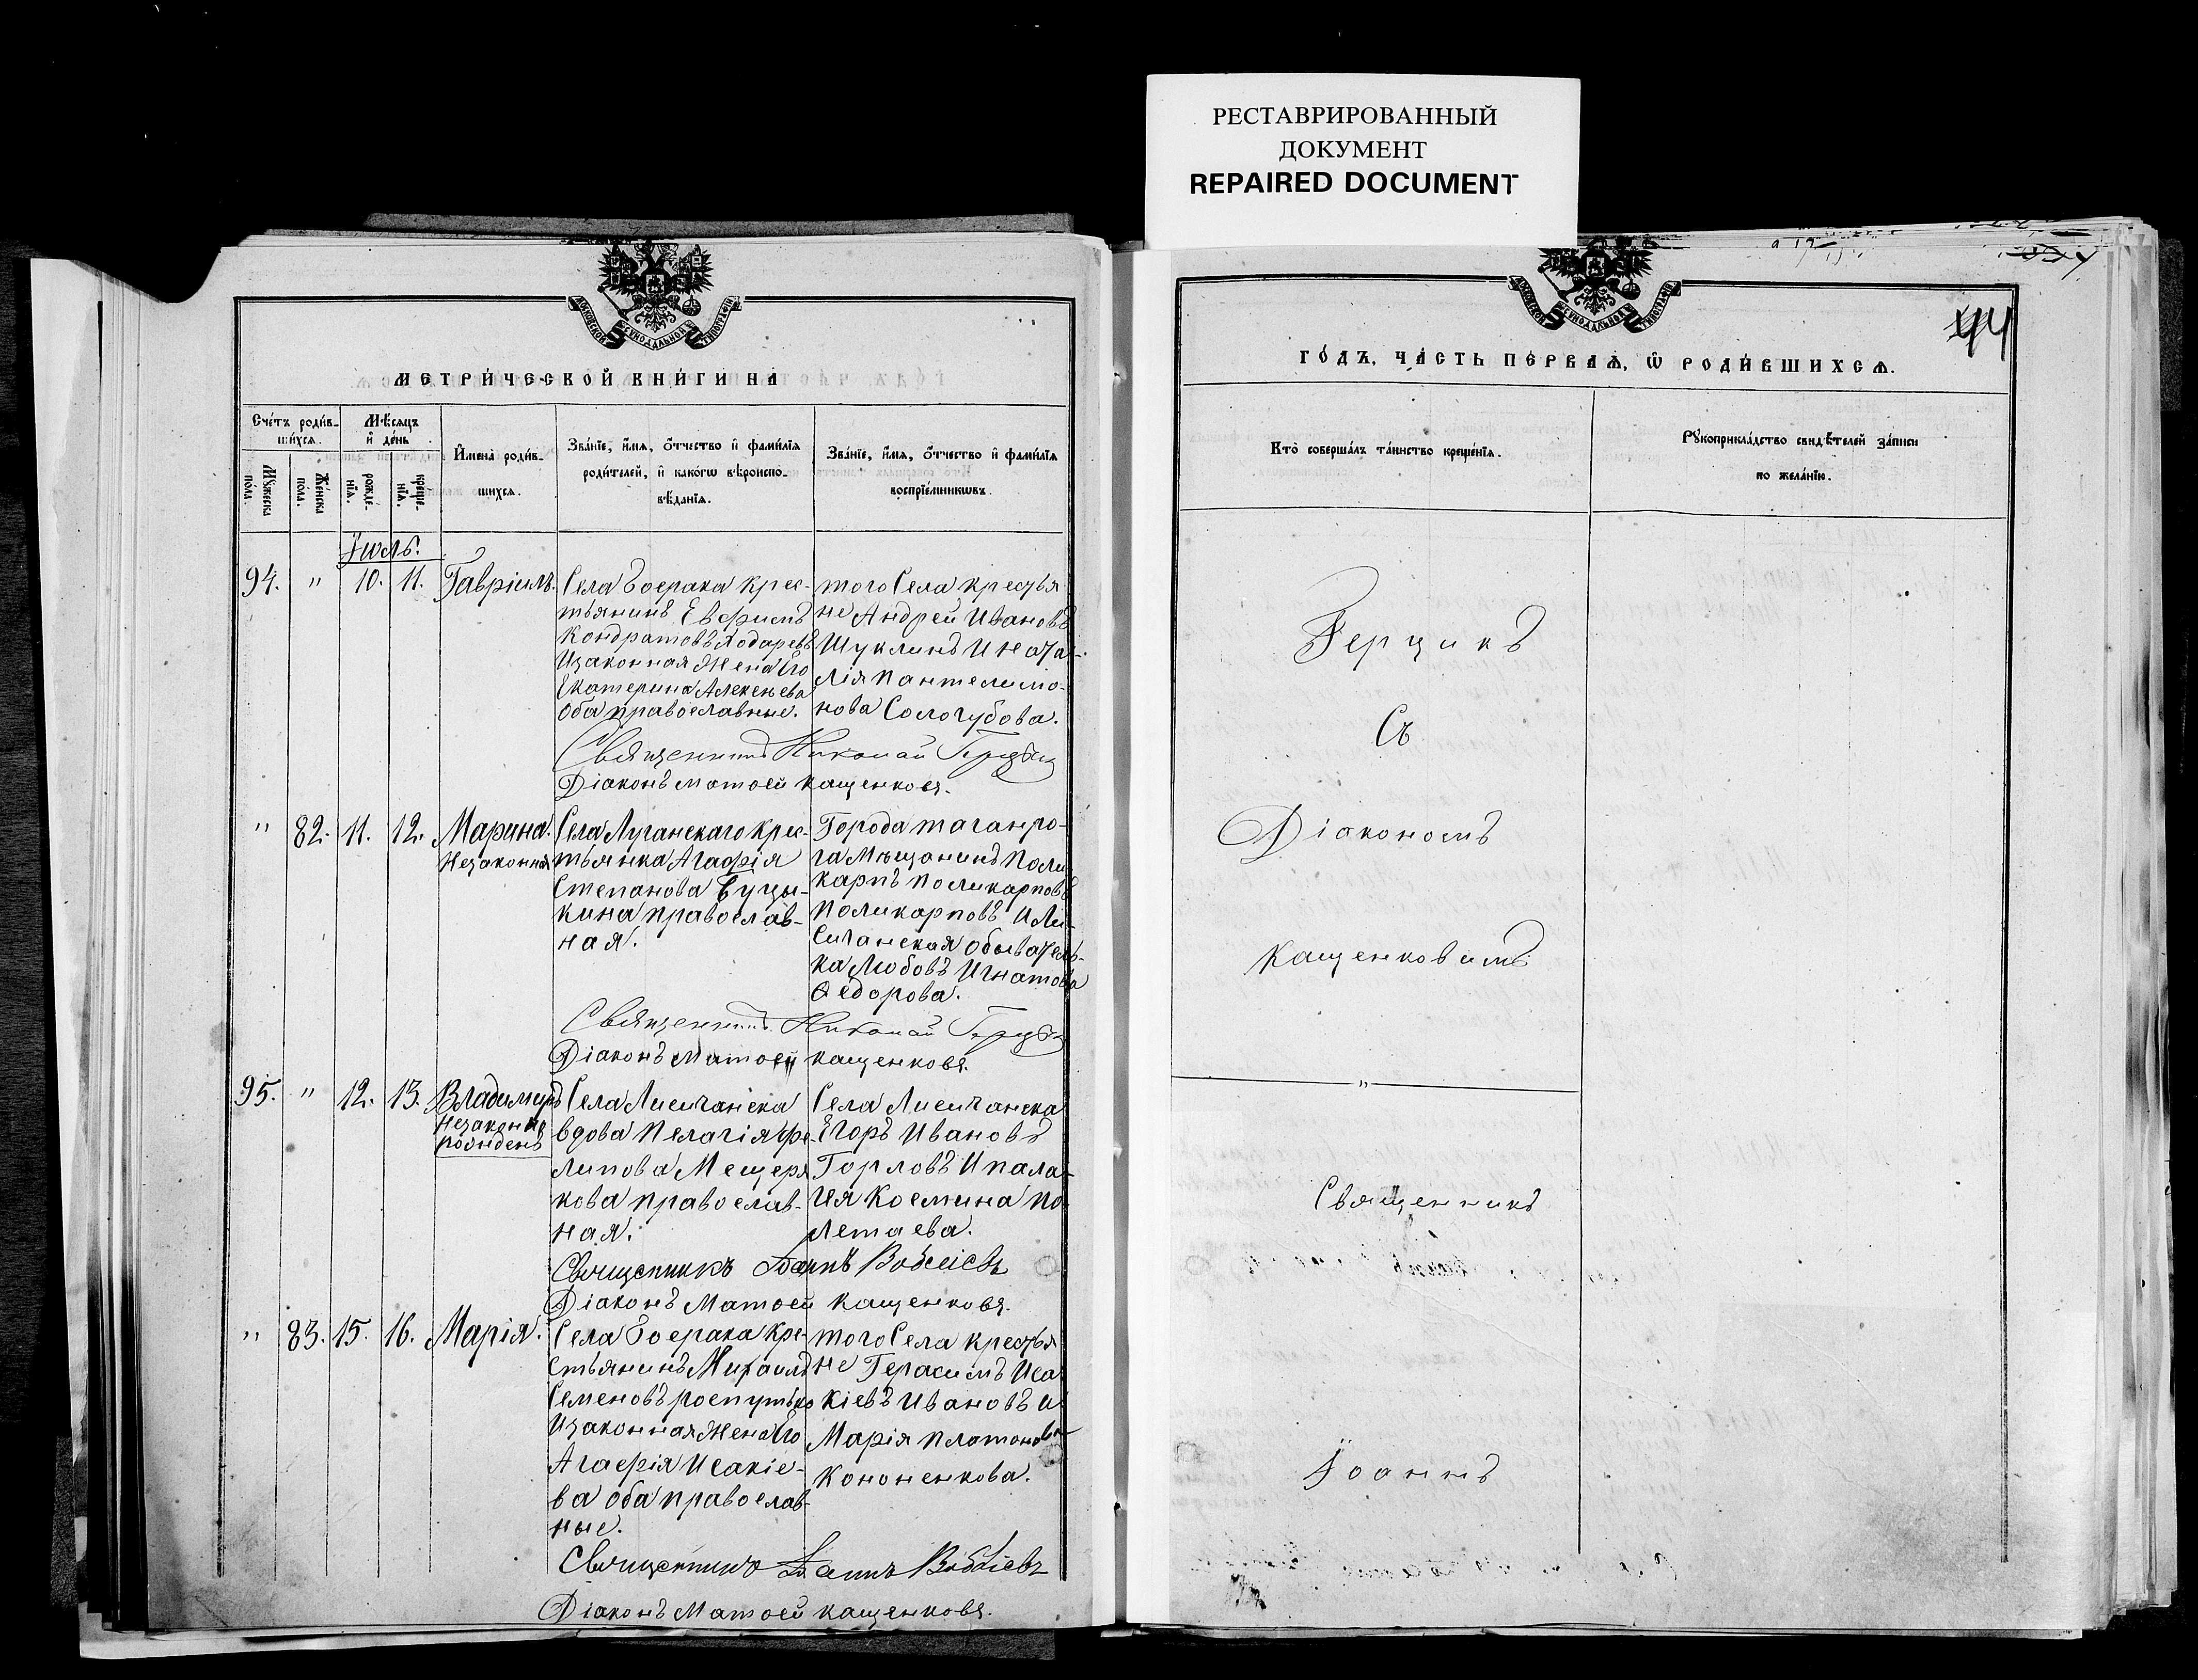 РЕСТАВРИРОВАННЫЙ
ДОКУМЕНТ
REPAIRED DOCUMENT
МОСКОВСКОЙ СѴНОДАЛЬНОЙ ТИПОГРАФІИ
МЕТРИ́ЧЕСКОЙ КНИ́ГИ НА
Сче́тъ роди́в-
ши́хся.
Мѣ́сяцъ
и҆ де́нь
Мꙋ́жеска
по́ла.
Же́нска
по́ла.
рожде́-
нїѧ.
креще́-
нїѧ.
И҆мена̀ роди́в-
шихся.
Зва́нїе, и҆́мѧ, ѻ҆́тчество и҆ фами́лїѧ
роди́телей, и҆ како́гѡ вѣроиспо-
вѣ́данїѧ.
Зва́нїе, и҆́мѧ, ѻ҆́тчество и҆ фами́лїѧ
воспрїе́мникѡвъ.
Іюль.
94. " 10. 11. Гавріилъ.
Села Боерака крес-
тьянинъ Евфимъ
Кондратовъ
Изаконная Жена Его
Екатерина Алексѣева
Оба православные.
того Села крестья
не Андрей Ивановъ
Шуклинъ И Ната-
лія Пантелимо-
нова Сологубова.
Священникъ Николай
Діаконъ Матѳей Кащенковъ.
" 82. 11. 12. Марина.
Незаконная
Села Луганскаго крес-
тьянка Агафія
Степанова
кина православ-
ная.
Города таганро-
га Мѣщанинъ Поли
карпъ Поликарповъ
Поликарповъ И Ли-
сичанская Обыватель-
ка Любовь Игнатова
Ѳедорова.
Священникъ Николай
Діаконъ Матѳей Кащенковъ.
95. " 12. 13. Владимиръ
Незаконно
рожденъ
Села Лисичанска
вдова Пелагія Фи-
липова Мещеря
кова православ-
ная.
Села Лисичанска
Егоръ Ивановъ
Горловъ И Пала-
гія Космина По
летаева.
Священникъ Іоаннъ
Діаконъ Матѳей Кащенковъ.
" 83. 15. 16. Марія.
Села Боерака кре-
стьянинъ Михаилъ
Семеновъ роспутько
Изаконная Жена Его
Агафія Исакіе-
ва оба православ-
ные.
того Села крестья
не Герасимъ Иса
кіевъ Ивановъ И
Марія Платонова
Кононенкова.
Священникъ Іоаннъ
Діаконъ Матѳей Кащенковъ.
МОСКОВСКОЙ СѴНОДАЛЬНОЙ ТИПОГРАФІИ
44
ГО́ДЪ, ЧА́СТЬ ПЕ́РВАѦ, Ѡ҆ РОДИ́ВШИХСѦ.
Кто̀ соверша́лъ та́инство креще́нїѧ.
Рꙋкоприкла́дство свидѣ́телей за́писи
по жела́нїю.
Герцикъ
Съ
Діакономъ
Кащенковымъ
"
Священникъ
Іоаннъ